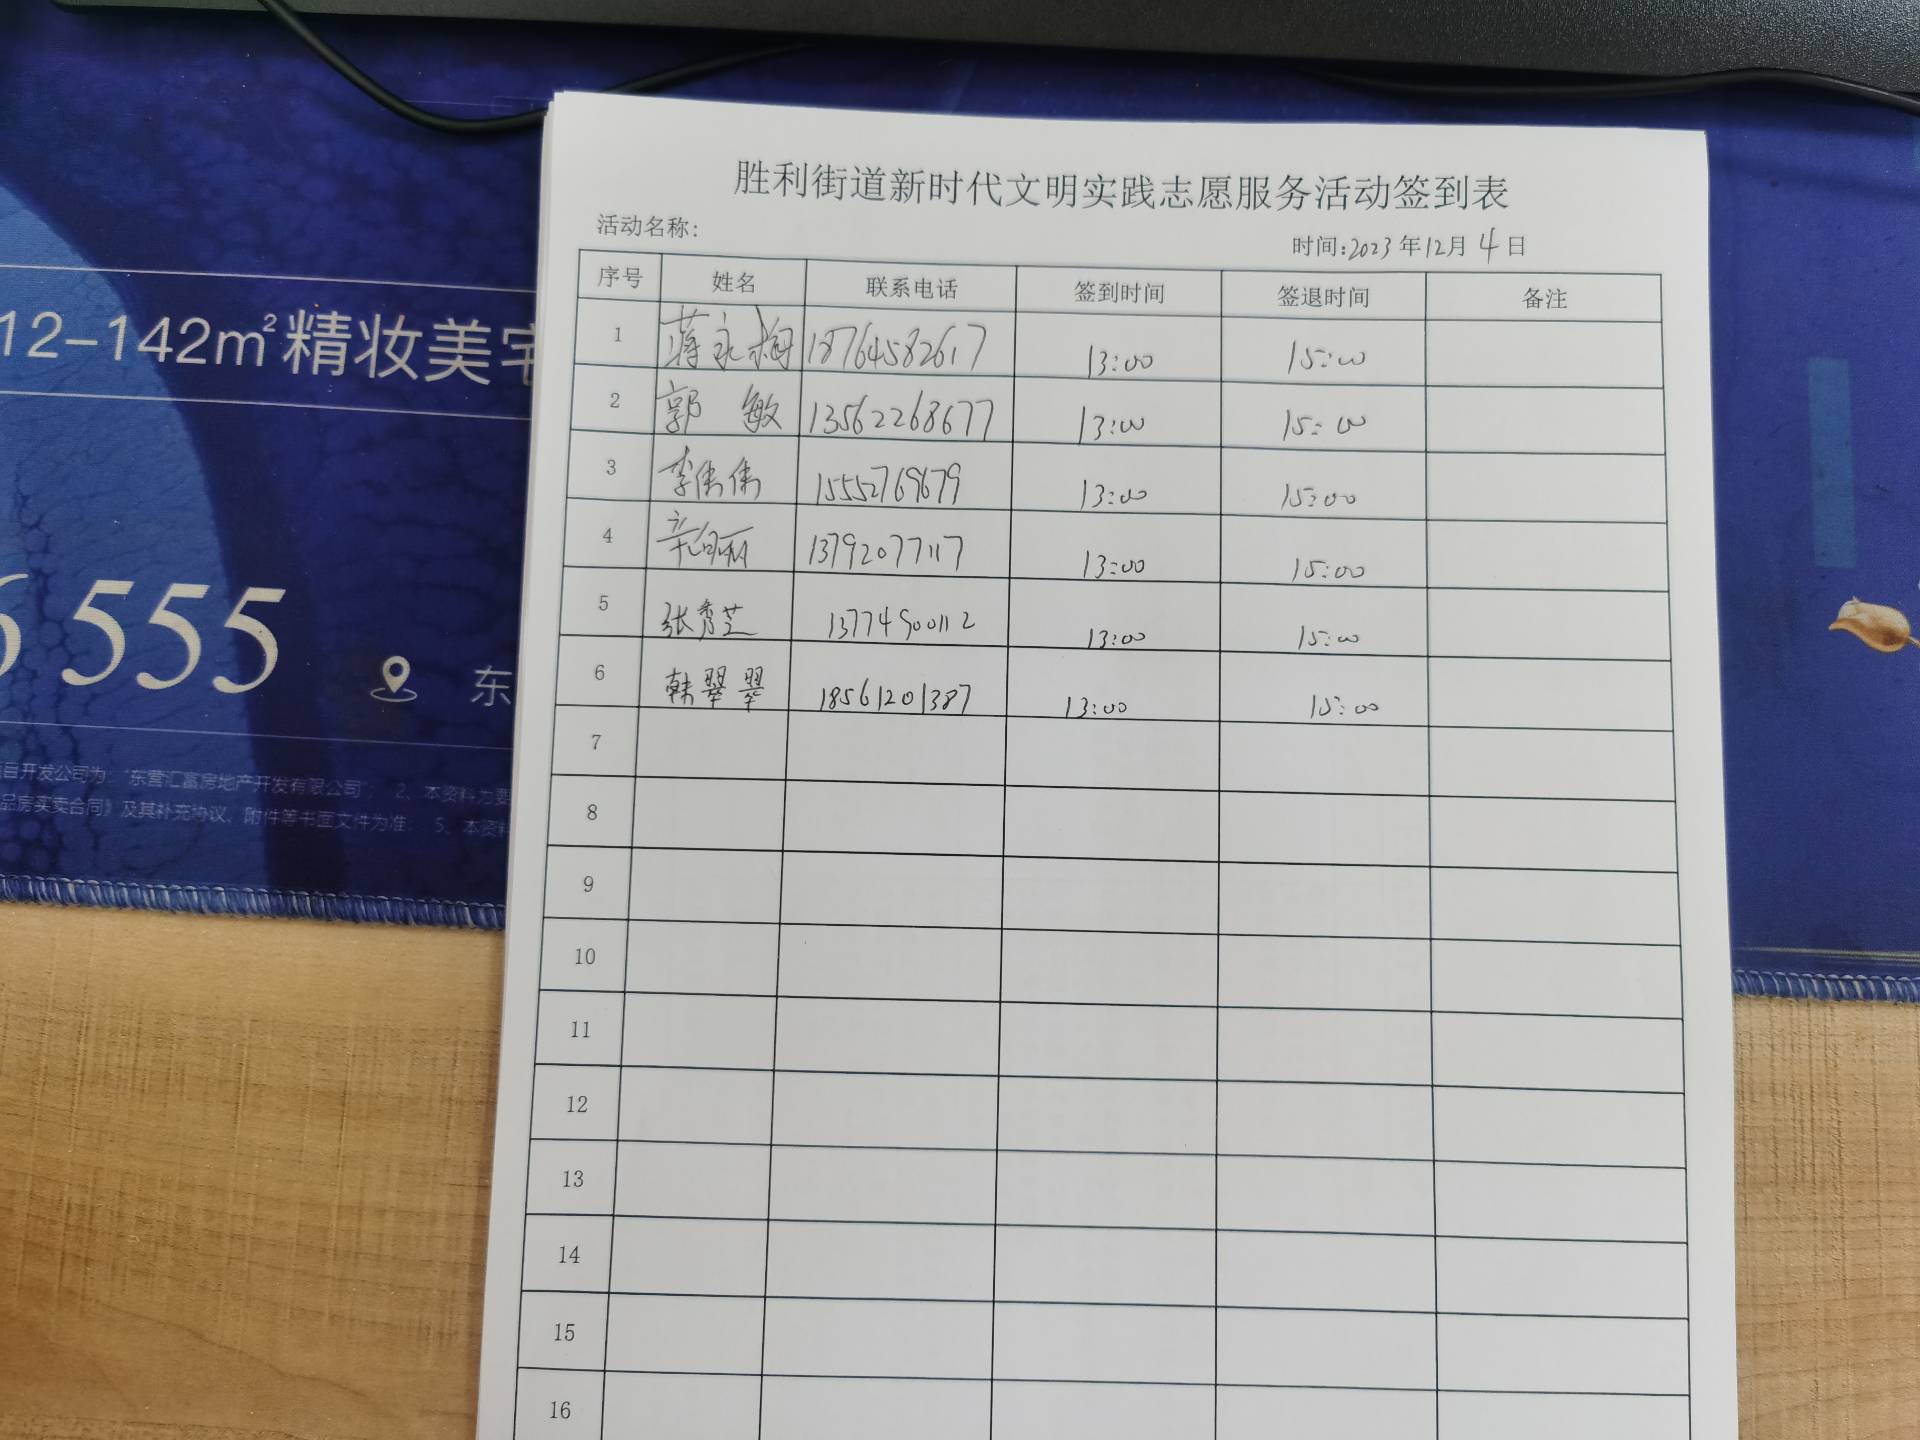 胜利街道新时代文明实践志愿服务活动签到表
活动名称:
时间:2023年12月4日
序号 姓名 联系电话 签到时间 签退时间 备注
1 蒋永梅 18764582617 13:00 15:00
2 郭敏 13562268677 13:00 15:00
3 李伟伟 15552769679 13:00 15:00
4 13792077117 13:00 15:00
5 张秀芝 13774900112 13:00 15:00
6 韩翠翠 18561201387 13:00 15:00
7
8
9
10
11
12
13
14
15
16
12-142m²精妆美宅
6 555
东
目开发公司为:“东营汇富房地产开发有限公司”; 2、本资料为要
品房买卖合同》及其补充协议、附件等书面文件为准; 5、本资料